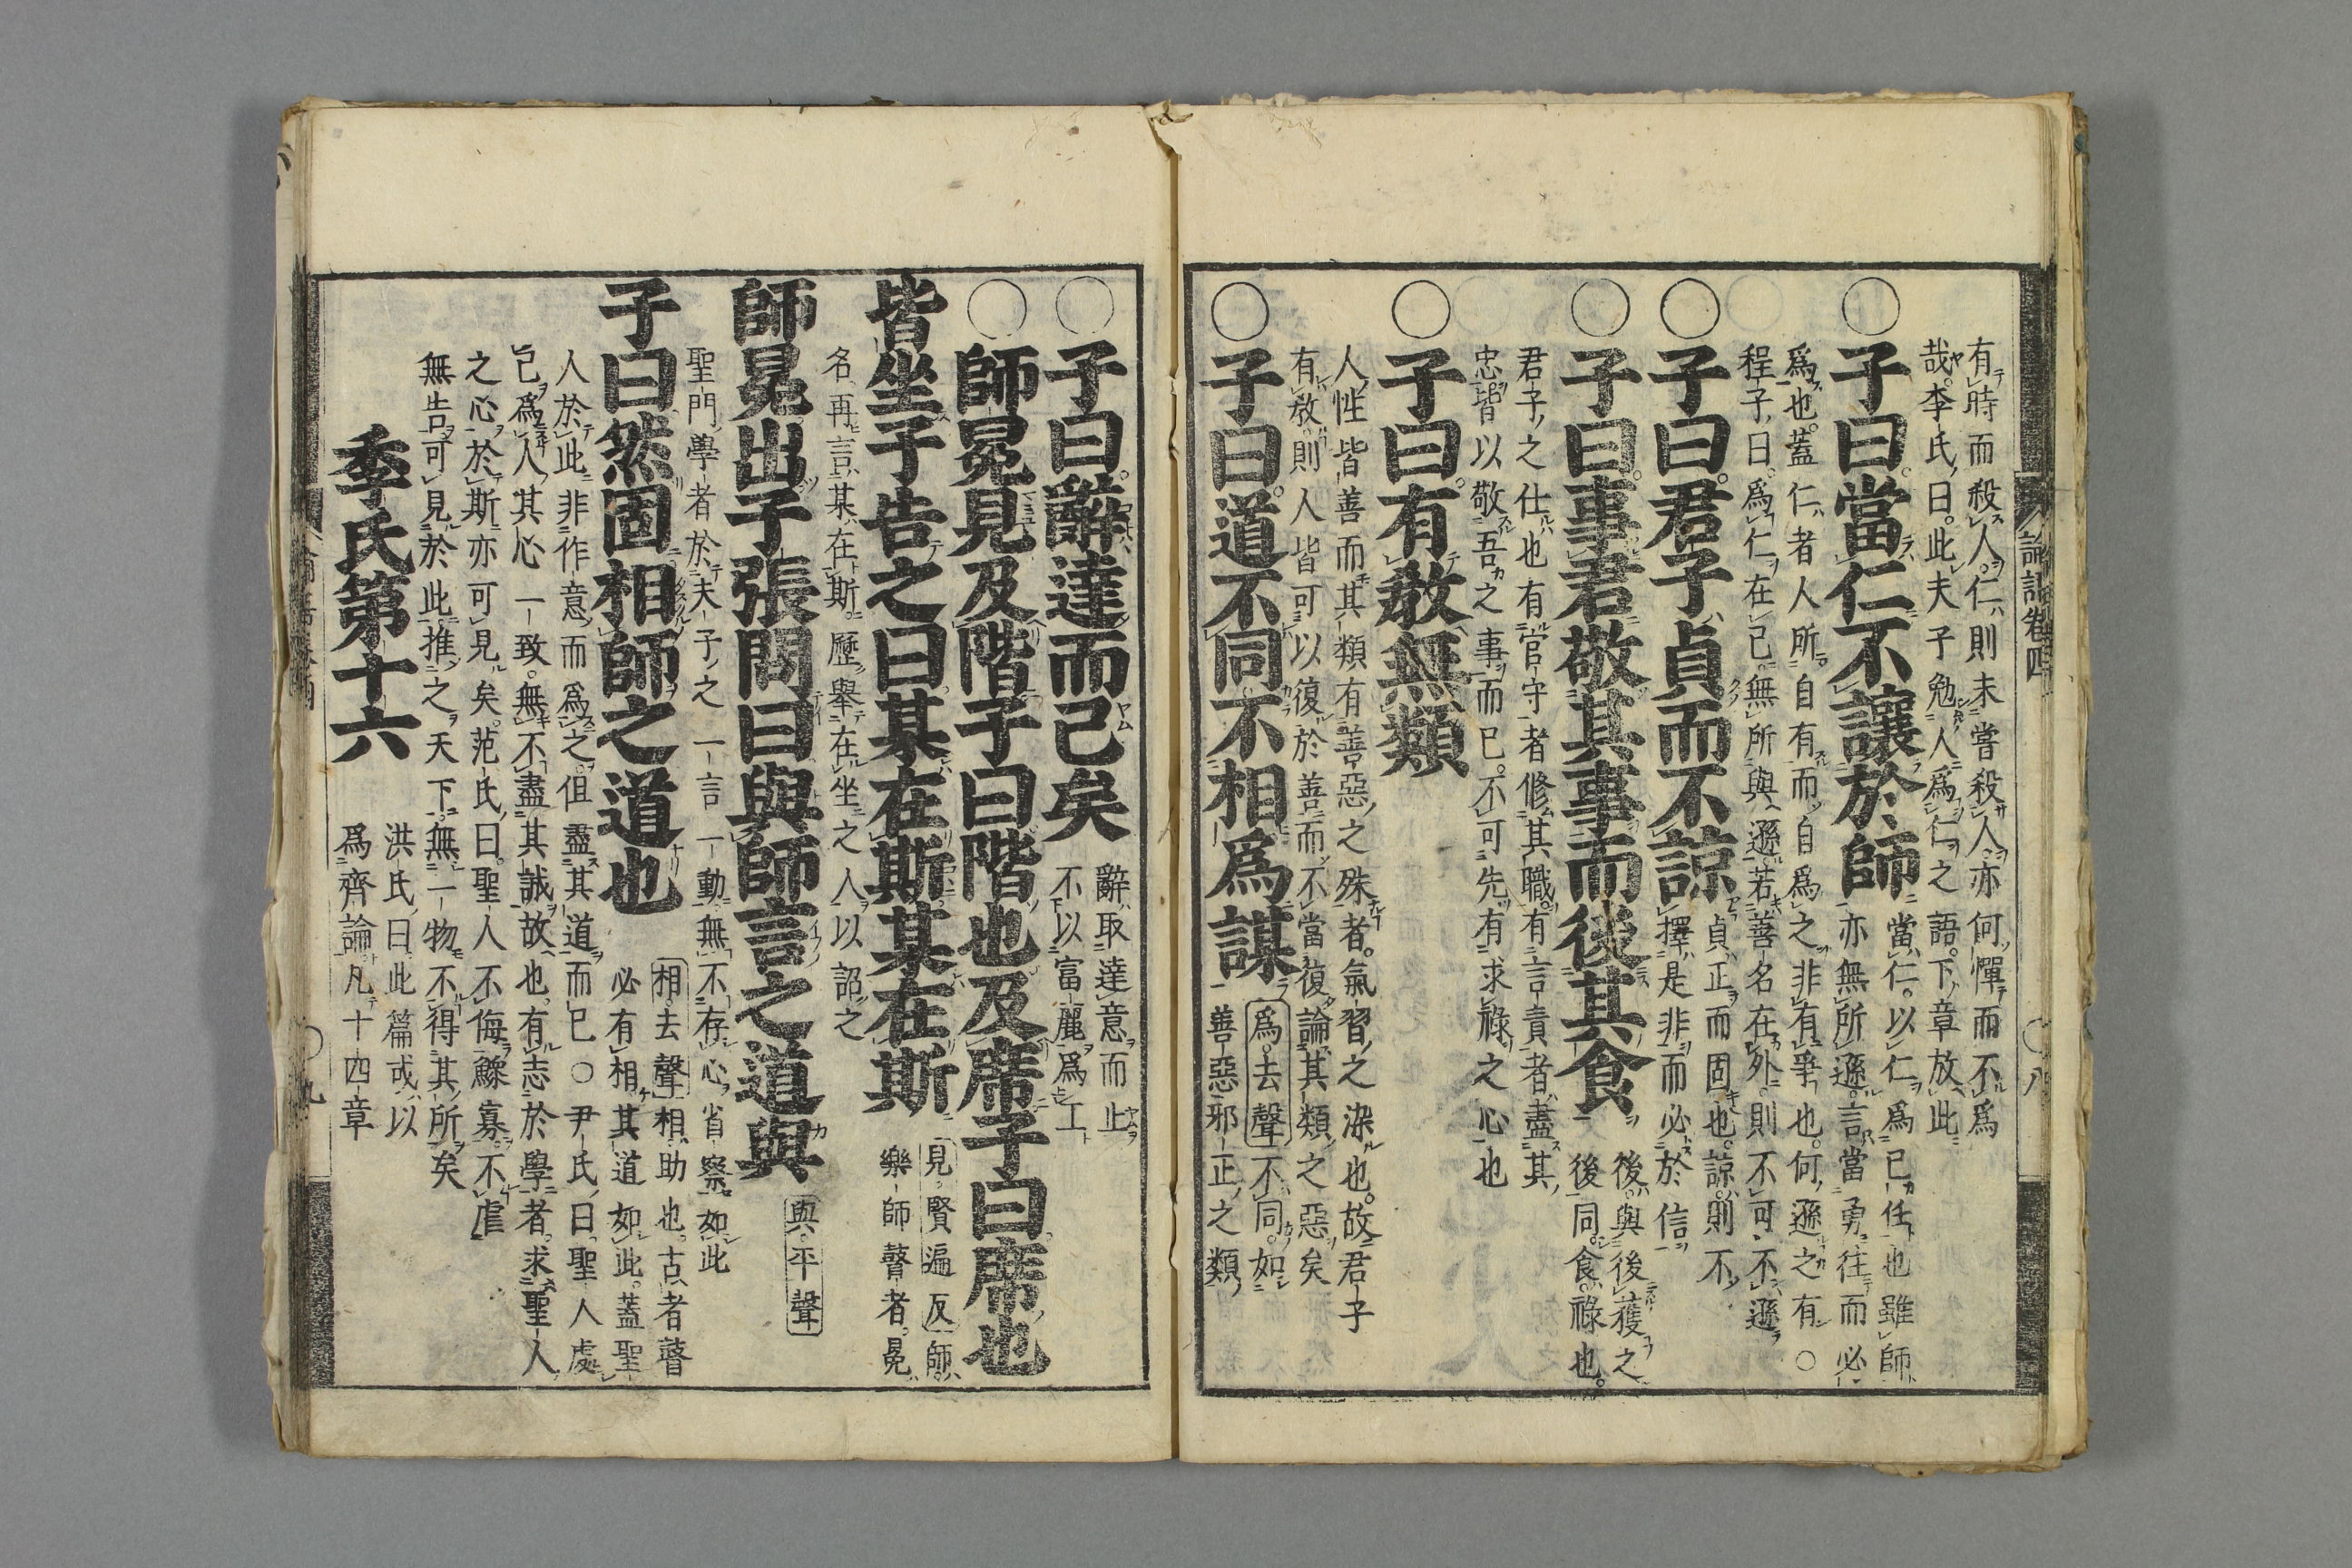 有時而殺人仁則未嘗殺人亦何憚而不爲
哉李氏曰此夫子勉人爲仁之語下章放此
○子曰當仁不讓於師
當仁以仁爲己任也雖師
亦無所遜言當勇往而必
爲也蓋仁者人所自有而自爲之非有爭也何遜之有○
程子曰爲仁在己無所與遜若善名在外則不可不遜
○子曰君子貞而不諒
貞正而固也諒則不
擇是非而必於信
○子曰事君敬其事而後其食
後與後獲之
後同食祿也
君子之仕也有官守者修其職有言責者盡其
忠皆以敬吾之事而已不可先有求祿之心也
○子曰有教無類
人性皆善而其類有善惡之殊者氣習之染也故君子
有教則人皆可以復於善而不當復論其類之惡矣
○子曰道不同不相爲謀
爲去聲不同如
善惡邪正之類
論語卷四
○八
○子曰辭達而已矣
辭取達意而止
不以富麗爲工
○師冕見及階子曰階也及席子曰席也
皆坐子告之曰某在斯某在斯
見賢遍反師
樂師瞽者冕
名再言某在斯歷舉在坐之人以詔之
師冕出子張問曰與師言之道與
與平聲
聖門學者於夫子之一言一動無不存心省察如此
子曰然固相師之道也
相去聲相助也古者瞽
必有相其道如此蓋聖
人於此非作意而爲之但盡其道而已○尹氏曰聖人處
己爲人其心一致無不盡其誠故也有志於學者求聖人
之心於斯亦可見矣范氏曰聖人不侮鰥寡不虐
無告可見於此推之天下無一物不得其所矣
季氏第十六
洪氏曰此篇或以
爲齊論凡十四章
○九